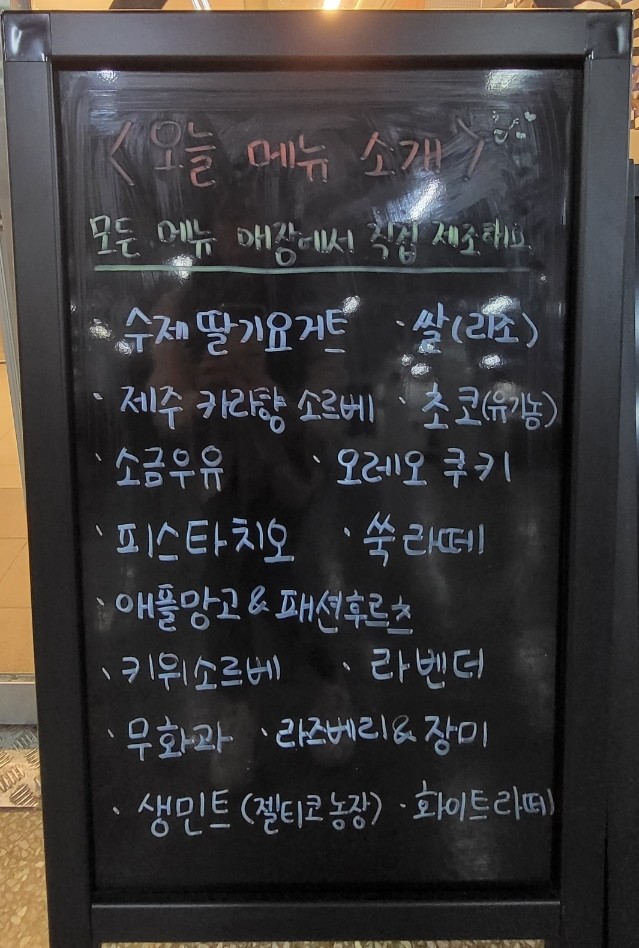 <오늘 메뉴 소개>
모든 메뉴 매장에서 직접 제조해요
· 수제딸기요거트 · 쌀(리조)
· 제주 카라향 소르베 · 초코(유기농)
· 소금우유 · 오레오 쿠키
· 피스타치오 · 쑥라떼
· 애플망고 & 패션후르츠
· 키위소르베 · 라벤더
· 무화과 · 라즈베리&장미
· 생민트 (젤티코농장) · 화이트라떼